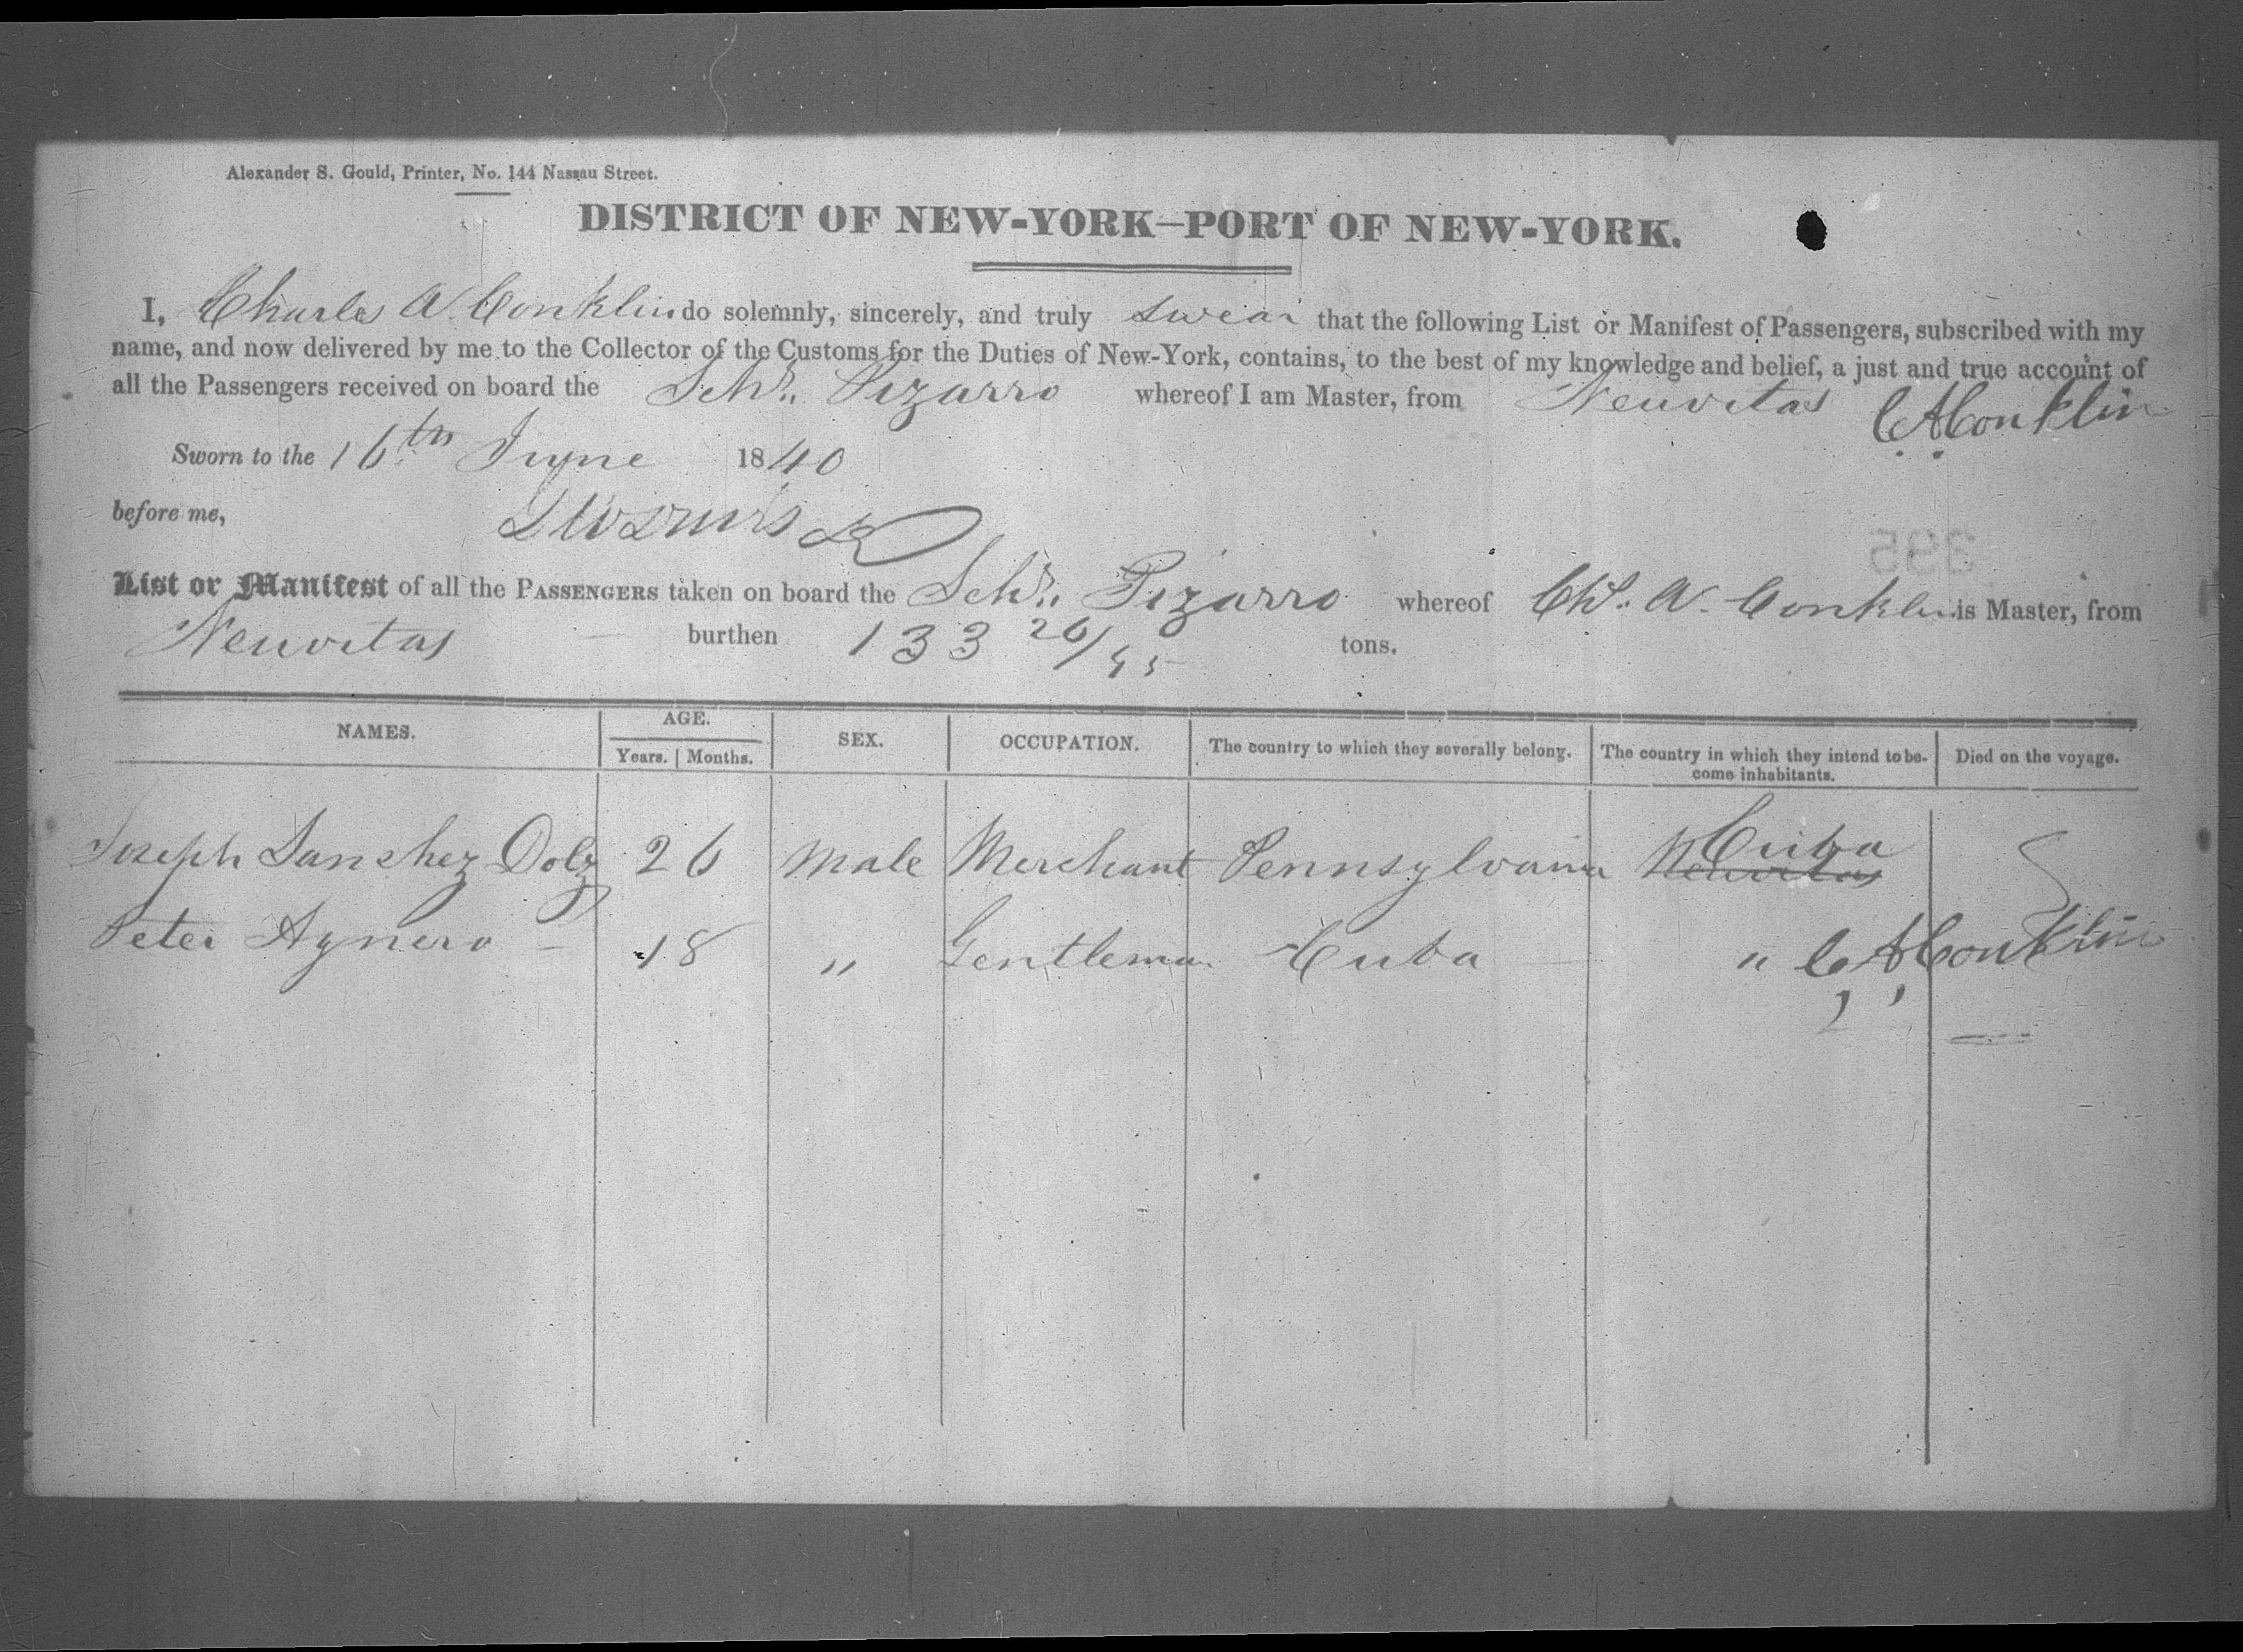 Alexander S. Gould, Printer, No. 144 Nassau Street.
DISTRICT OF NEW-YORK—PORT OF NEW-YORK.
I, Charles A. Conklin do solemnly, sincerely, and truly swear that the following List or Manifest of Passengers, subscribed with my
name, and now delivered by me to the Collector of the Customs for the Duties of New-York, contains, to the best of my knowledge and belief, a just and true account of
all the Passengers received on board the Schr. Pizarro whereof I am Master, from Neuvitas C A Conklin
Sworn to the 16th June 1840
before me,
395
List or Manifest of all the PASSENGERS taken on board the Schr. Pizarro whereof Chs. A. Conklin is Master, from
Neuvitas burthen 133 26/95 tons.
NAMES. AGE. SEX. OCCUPATION. The country to which they severally belong. The country in which they intend to be- Died on the voyage.
Years. Months. come inhabitants.
Joseph Sanchez Dolz 26 Male Merchant Pennsylvania Neuvitas Cuba
Peter Agnero 18 " Gentleman Cuba " C A Conklin